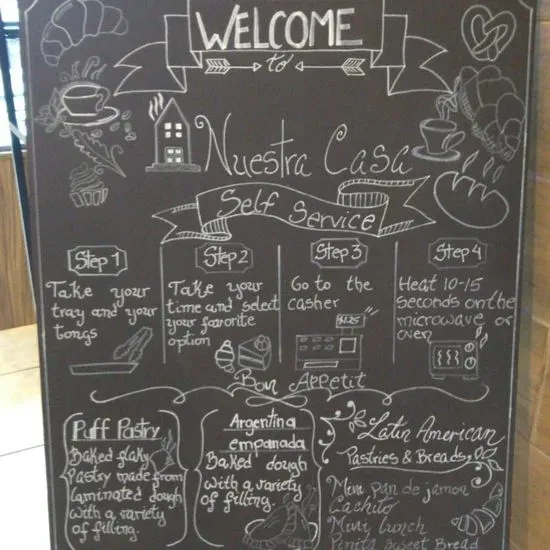 WELCOME
to
Nuestra Casa
Self Service
Step 1
Take your
tray and your
tongs
Step 2
Take your
time and select
your favorite
option
Step 3
Go to the
casher
$1.25
Step 4
Heat 10-15
seconds on the
microwave or
oven
Bon Appetit
Puff Pastry
Baked flaky
Pastry made from
laminated dough
with a variety
of filling.
Argentina
empanada
Baked dough
with a variety
of filling.
Latin American
Pastries & Breads
Mini pan de jamon
Cachito
Mini lunch
Piñita sweet Bread